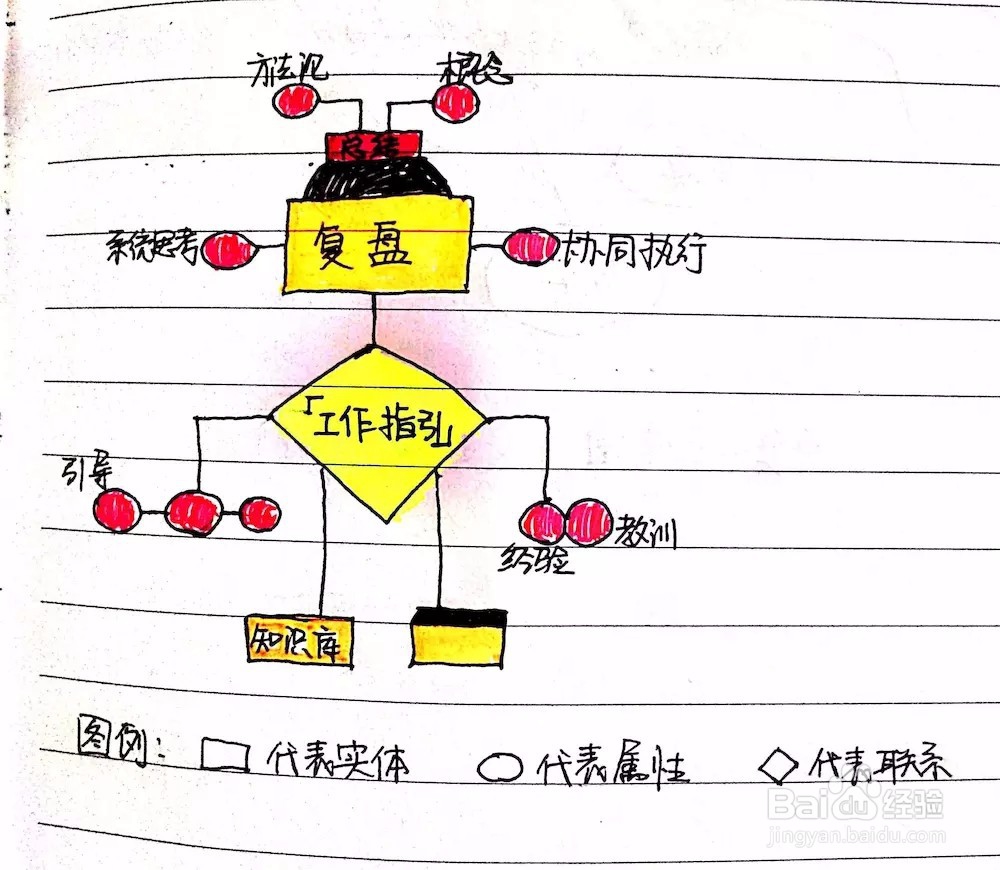 方法论 概念
总结
系统思考 复盘 协同执行
「工作指引」
引导
教训
经验
知识库
图例: 代表实体 代表属性 代表联系
Baidu经验
jingyan.baidu.com